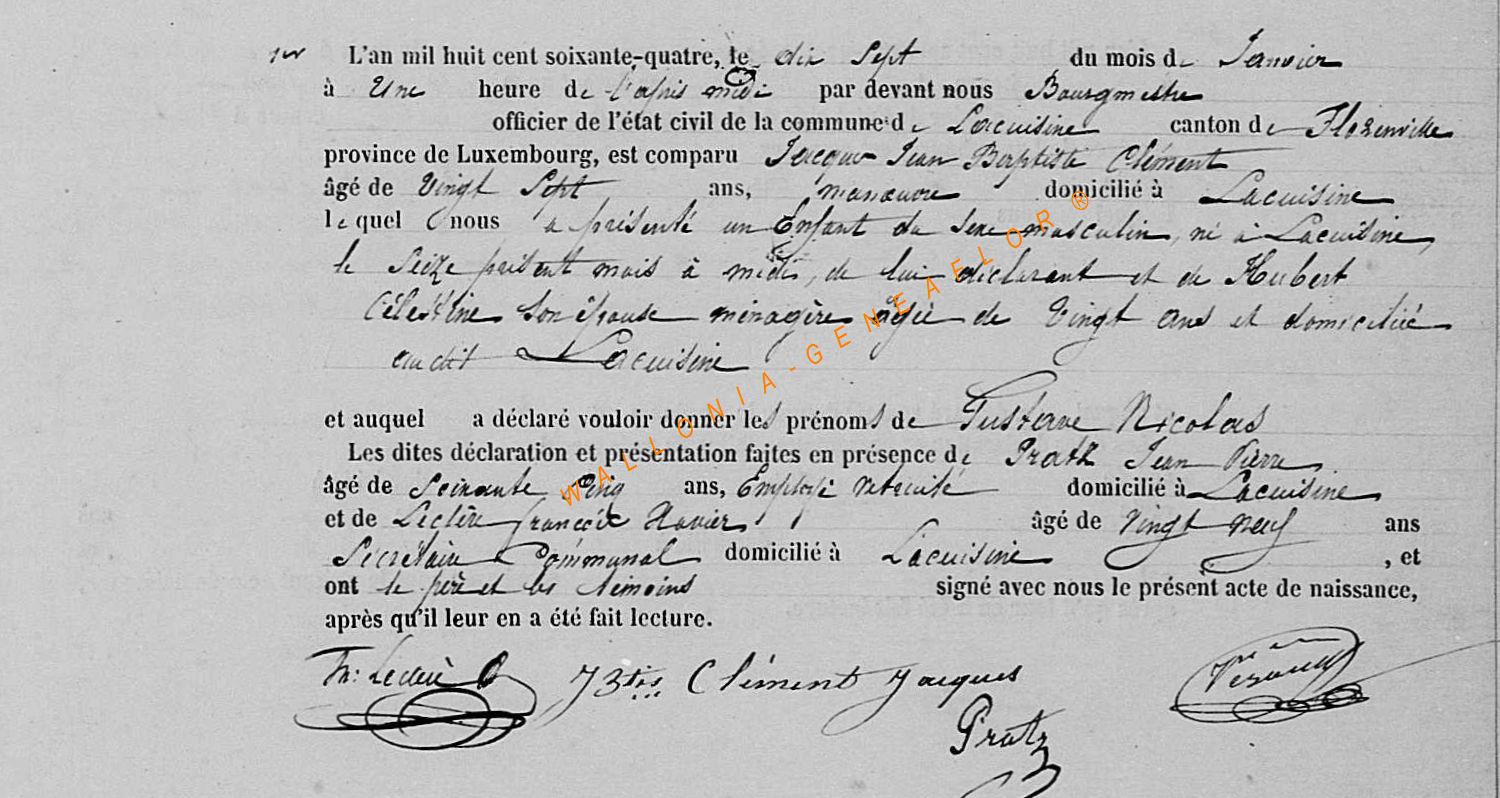 L'an mil huit cent soixante-quatre, le dix Sept du mois de Janvier
à Une heure de l'après midi par devant nous Bourgmestre
officier de l'état civil de la commune de Lacuisine canton de Florenville
province de Luxembourg, est comparu Jacques Jean Baptiste Clément
âgé de Vingt Sept ans, manœuvre domicilié à Lacuisine
lequel nous a présenté un Enfant du sexe masculin, né à Lacuisine,
le Seize présent mois à midi, de lui déclarant et de Hubert
Célestine son épouse ménagère agée de Vingt ans et domicilié
audit Lacuisine
et auquel a déclaré vouloir donner les prénoms de Gustave Nicolas
Les dites déclaration et présentation faites en présence de Pratz Jean Pierre
âgé de Soixante Cinq ans, Employé retraité domicilié à Lacuisine
et de Leclère françois Xavier âgé de Vingt neuf ans
Secrétaire Communal domicilié à Lacuisine, et
ont le père et les témoins signé avec nous le présent acte de naissance,
après qu'il leur en a été fait lecture.
Leclère Clément Jacques
Pratz
WALLONIA-GENEAELOR ®